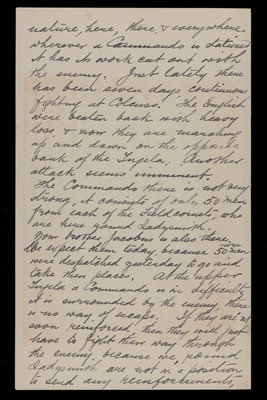 nature, here, there, & everywhere.
Wherever a Commando is stationed
it has its work cut out with
the enemy. Just lately there
has been seven days continuous
fighting at Colenso. The English
were beaten back with heavy
loss, & now they are marching
up and down on the opposite
bank of the Tugela. Another
attack seems imminent.
The Commando there is not very
strong, it consists of only 50 men
from each of the Fieldcornets, who
are here round Ladysmith.
Your brother Jacobus is also there,
We expect them today, because 50 men
were dispatched yesterday to go and
take their places. At the upper
Tugela a Commando is in difficulty
it is surrounded by the enemy, there
is no way of escape. If they are not
soon reinforced, then they will just
have to fight their way through
the enemy, because we, round
Ladysmith are not in a position
to send any reinforcements,